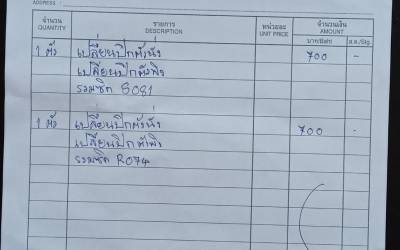 ADDRESS :
จำนวน QUANTITY รายการ DESCRIPTION หน่วยละ UNIT PRICE จำนวนเงิน AMOUNT
บาท/Baht ส.ต./Stg.
1 ตัว เปลี่ยนปีกตัวนั่ง 700 -
เปลี่ยนปีกตัวพิง
รวมซิด S081
1 ตัว เปลี่ยนปีกตัวนั่ง 700 -
เปลี่ยนปีกตัวพิง
รวมซิด R074